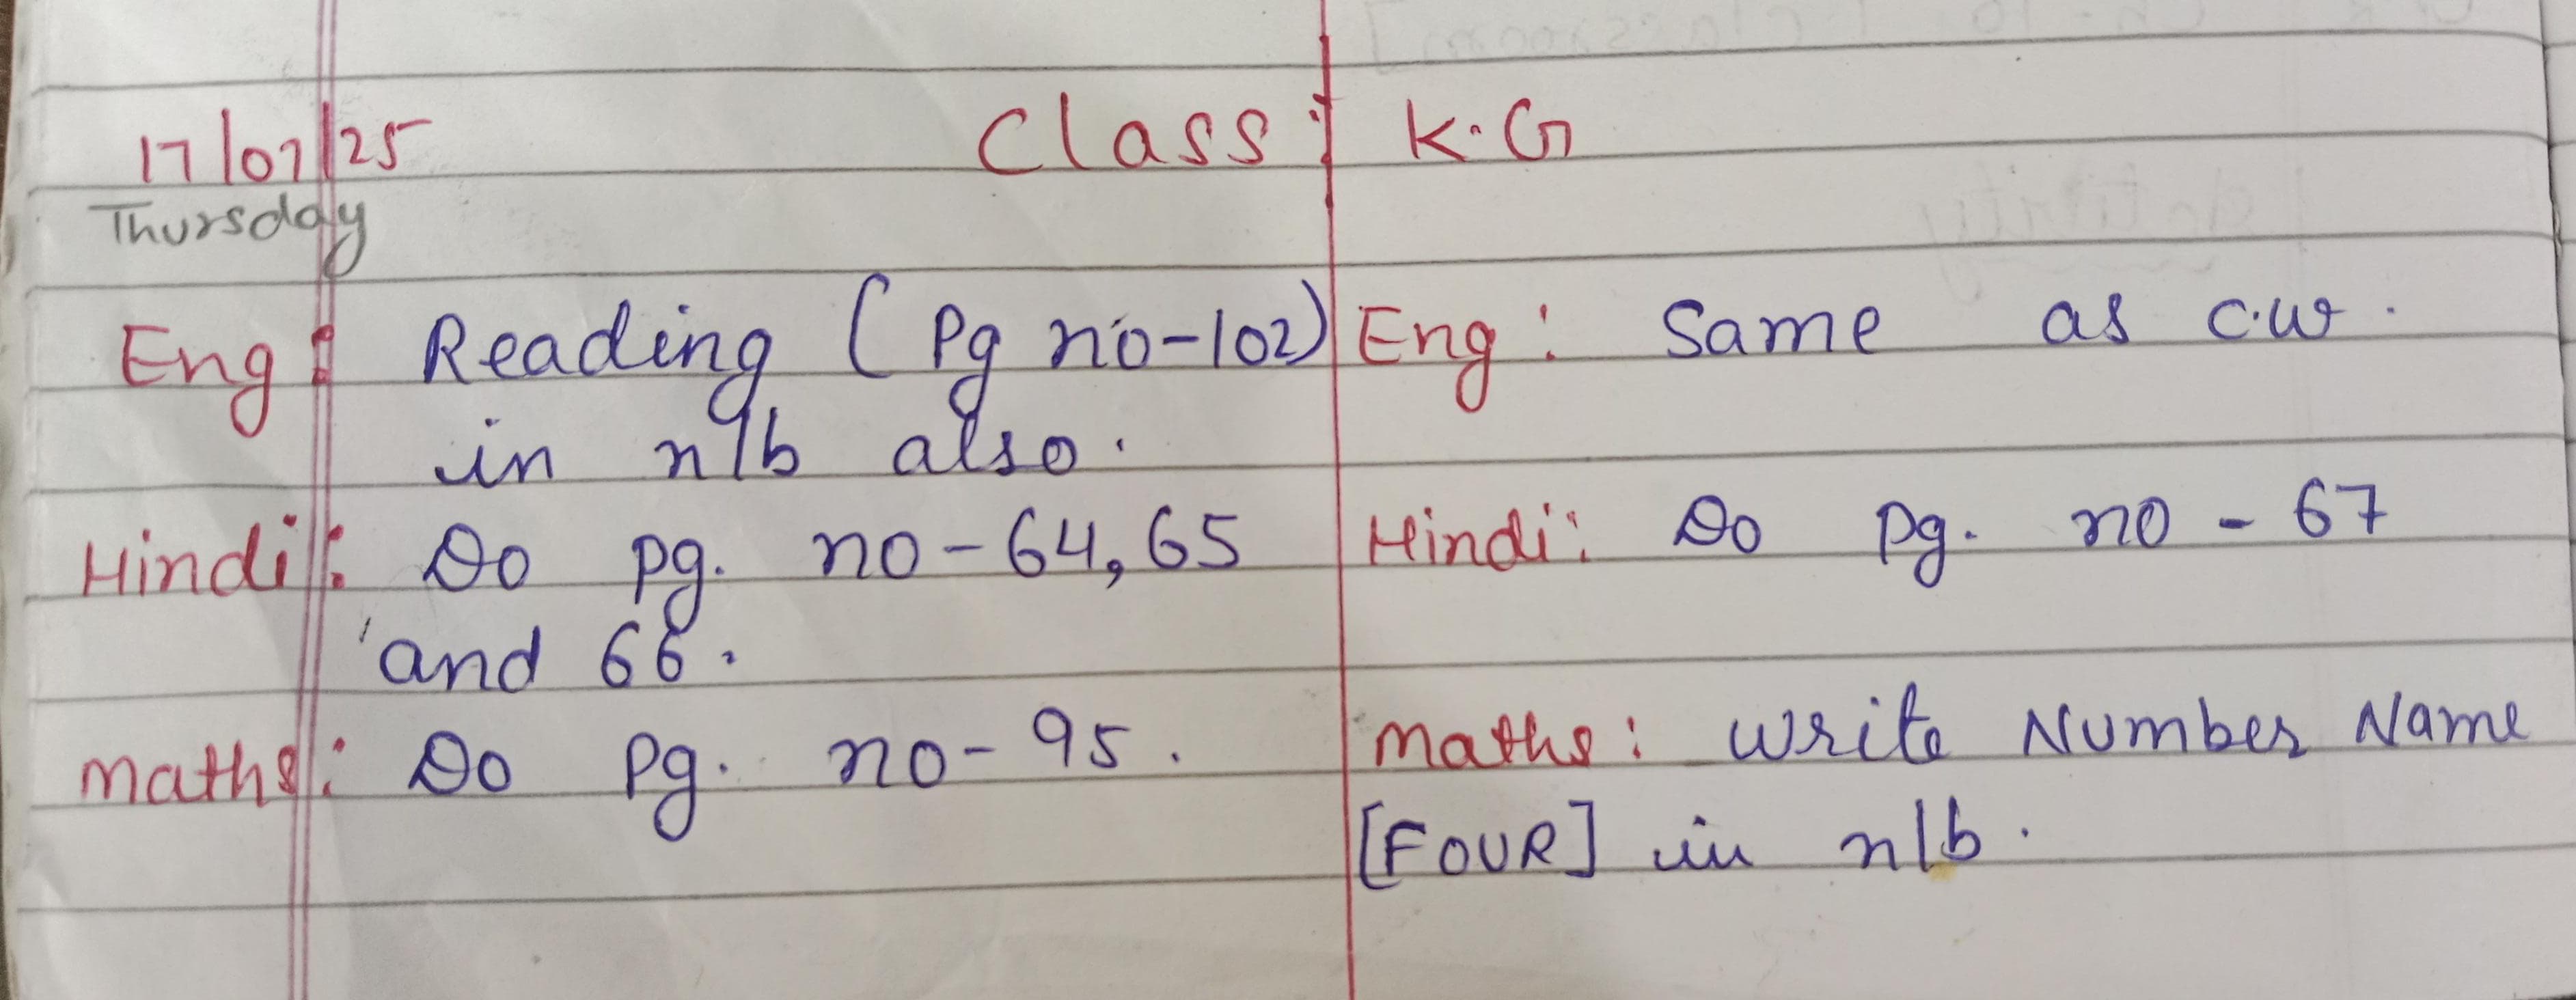 17/07/25 Class : K.G
Thursday
Eng : Reading (Pg no-102)
in n/b also.
Hindi : Do pg. no-64,65
and 66.
Maths : Do Pg. no-95.
Eng : Same as c.w.
Hindi : Do Pg. no - 67
Maths : Write Number Name
[FOUR] in n/b.